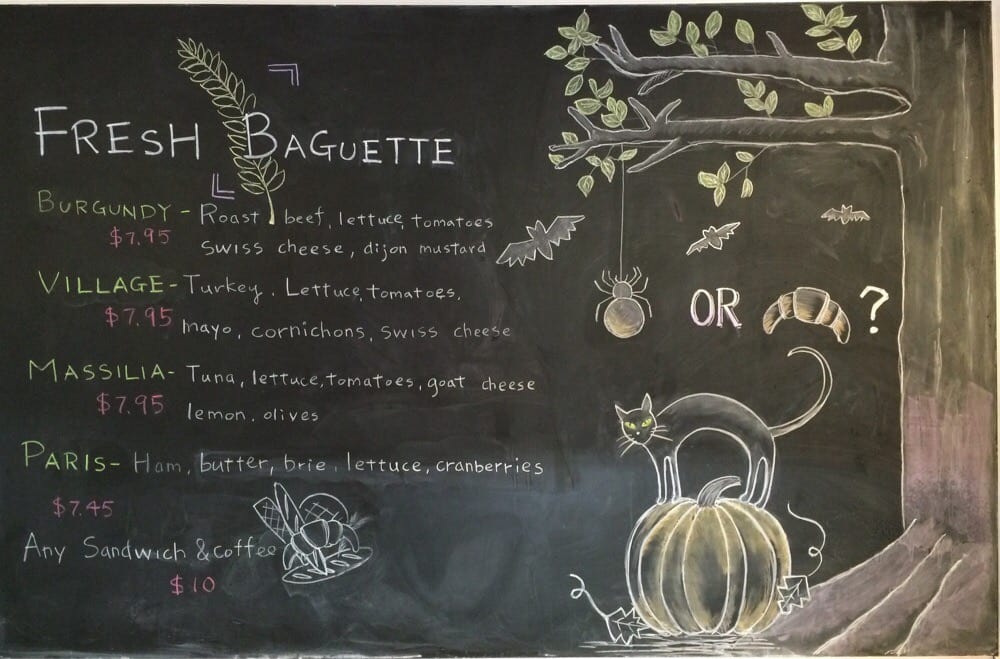 FRESH BAGUETTE
BURGUNDY - Roast beef, lettuce, tomatoes
$7.95 swiss cheese, dijon mustard
VILLAGE- Turkey, Lettuce, tomatoes,
$7.95 mayo, cornichons, swiss cheese
MASSILIA- Tuna, lettuce, tomatoes, goat cheese
$7.95 lemon, olives
PARIS- Ham, butter, brie, lettuce, cranberries
$7.45
Any Sandwich & coffee
$10
OR ?